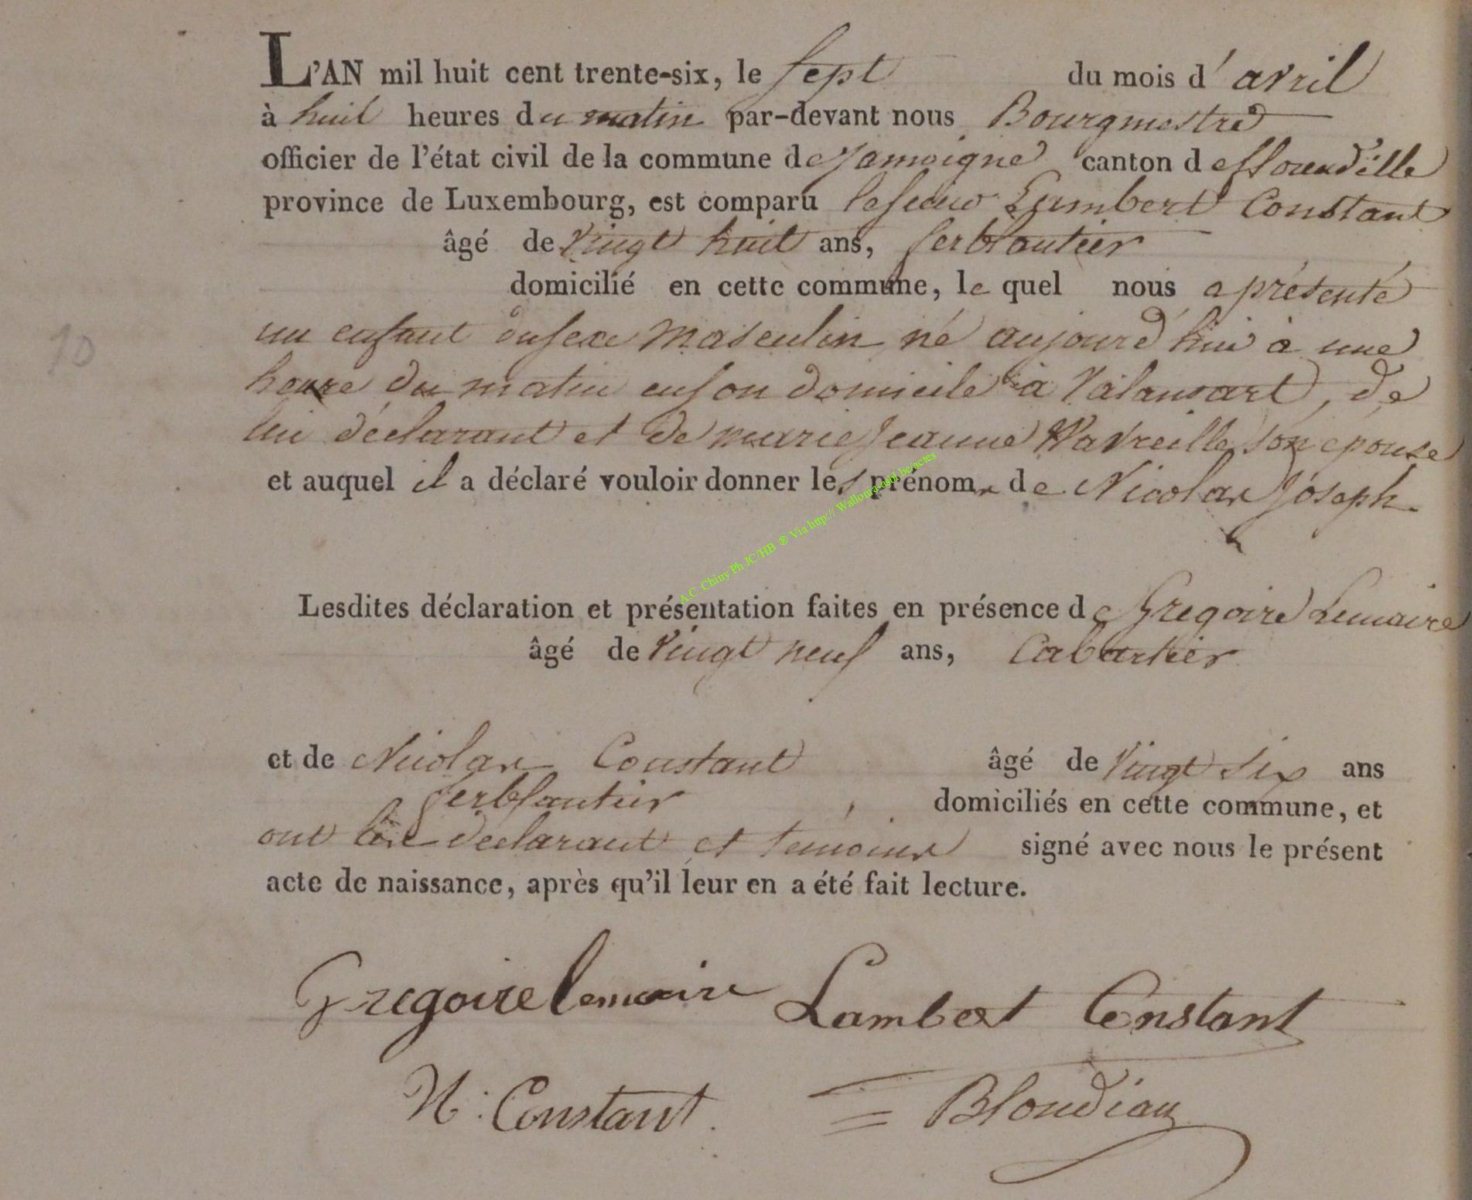 L'AN mil huit cent trente-six, le sept du mois d'avril
à huit heures du matin par-devant nous Bourgmestre
officier de l'état civil de la commune de Jamoigne canton de fflorenville
province de Luxembourg, est comparu le sieur Lambert Constant
âgé de vingt huit ans, ferblantier
domicilié en cette commune, le quel nous a présenté
un enfant du sexe masculin, né aujourd'hui à une
heure du matin en son domicile à Valansart, de
lui déclarant et de marie Jeanne Wavreille son epouse
et auquel il a déclaré vouloir donner les prénoms de Nicolas Joseph.
A.C Chiny Ph JC HB ® Via http://
Lesdites déclaration et présentation faites en présence de Gregoire Lemaire
âgé de vingt neuf ans, Cabartier
et de Nicolas Constant âgé de vingt six ans
ferblantier, domiciliés en cette commune, et
ont les déclarant et témoins signé avec nous le présent
acte de naissance, après qu'il leur en a été fait lecture.
Gregoire lemaire Lambert Constant
N. Constant. Blondiau
10